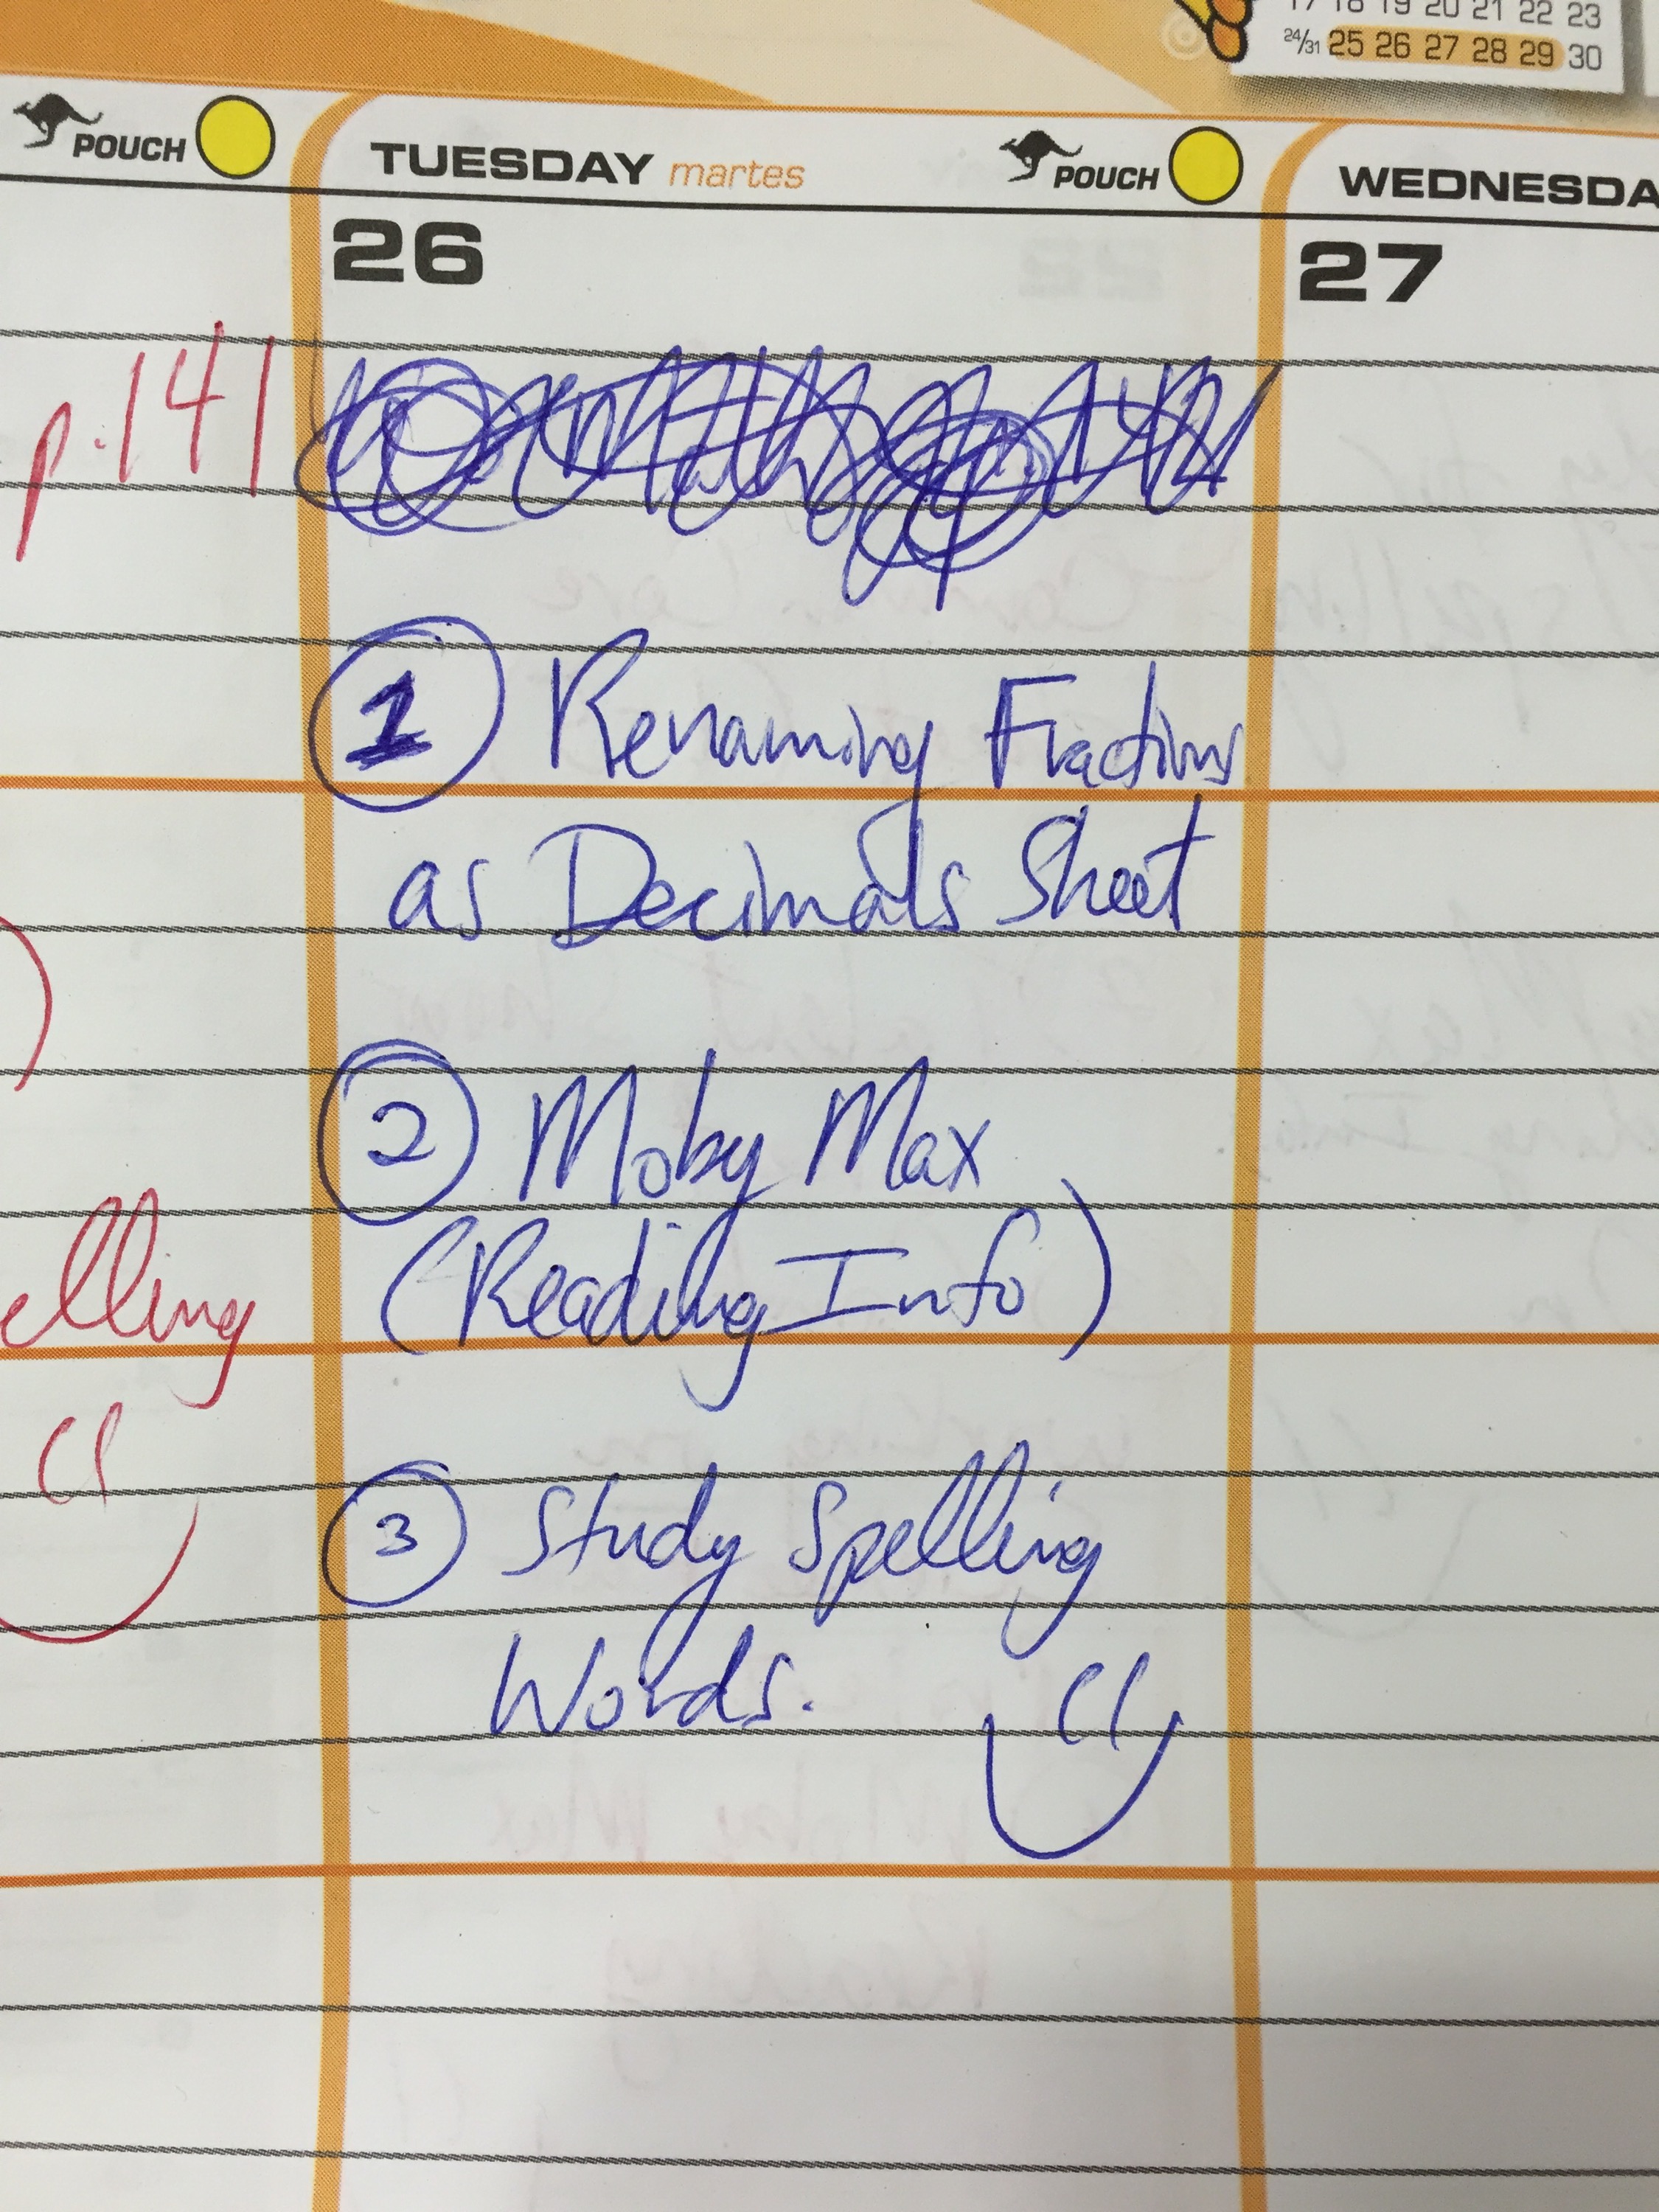 17 18 19 20 21 22 23
24/31 25 26 27 28 29 30
POUCH
TUESDAY martes
POUCH
WEDNESDA
26
27
p.141
1 Renaming Fractions
as Decimals Sheet
2 Moby Max
(Reading Info)
elling
3 Study Spelling
Words.